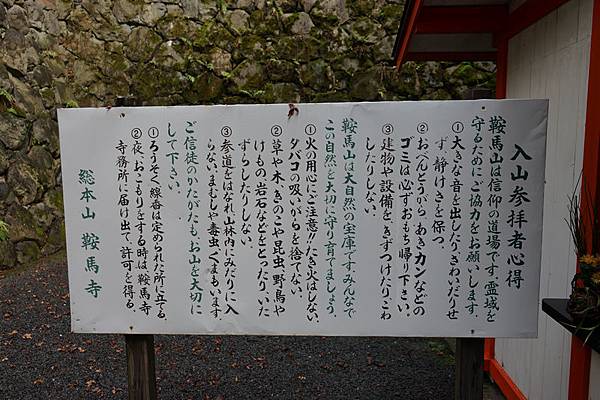 入山参拝者心得
鞍馬山は信仰の道場です。霊域を
守るためにご協力をお願いします。
①大きな音を出したり、さわいだりせ
ず、静けさを保つ。
②おべんとうがら・あきカンなどの
ゴミは必ずおもち帰り下さい。
③建物や設備をきずつけたり、さわ
したりしない。
鞍馬山は大自然の宝庫です。みんなで
この自然を大切に守り育てましょう。
①火の用心にご注意!!たき火はしない、
タバコの吸いがらを捨てない。
②草や木・きのこや昆虫・野鳥や
けもの・岩石などをとったり、いた
ずらしたりしない。
③参道をはなれ、山林内にみだりに入
らない。まむしや毒虫・くまもいます。
ご信徒のかたがたも、お山を大切に
して下さい。
①ろうそく・線香は定められた所に立る。
②夜、おこもりをする時は、鞍馬寺
寺務所に届け出て、許可を得る。
総本山 鞍馬寺